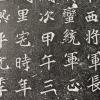 西將軍長
統軍
次甲午三
里宅時年